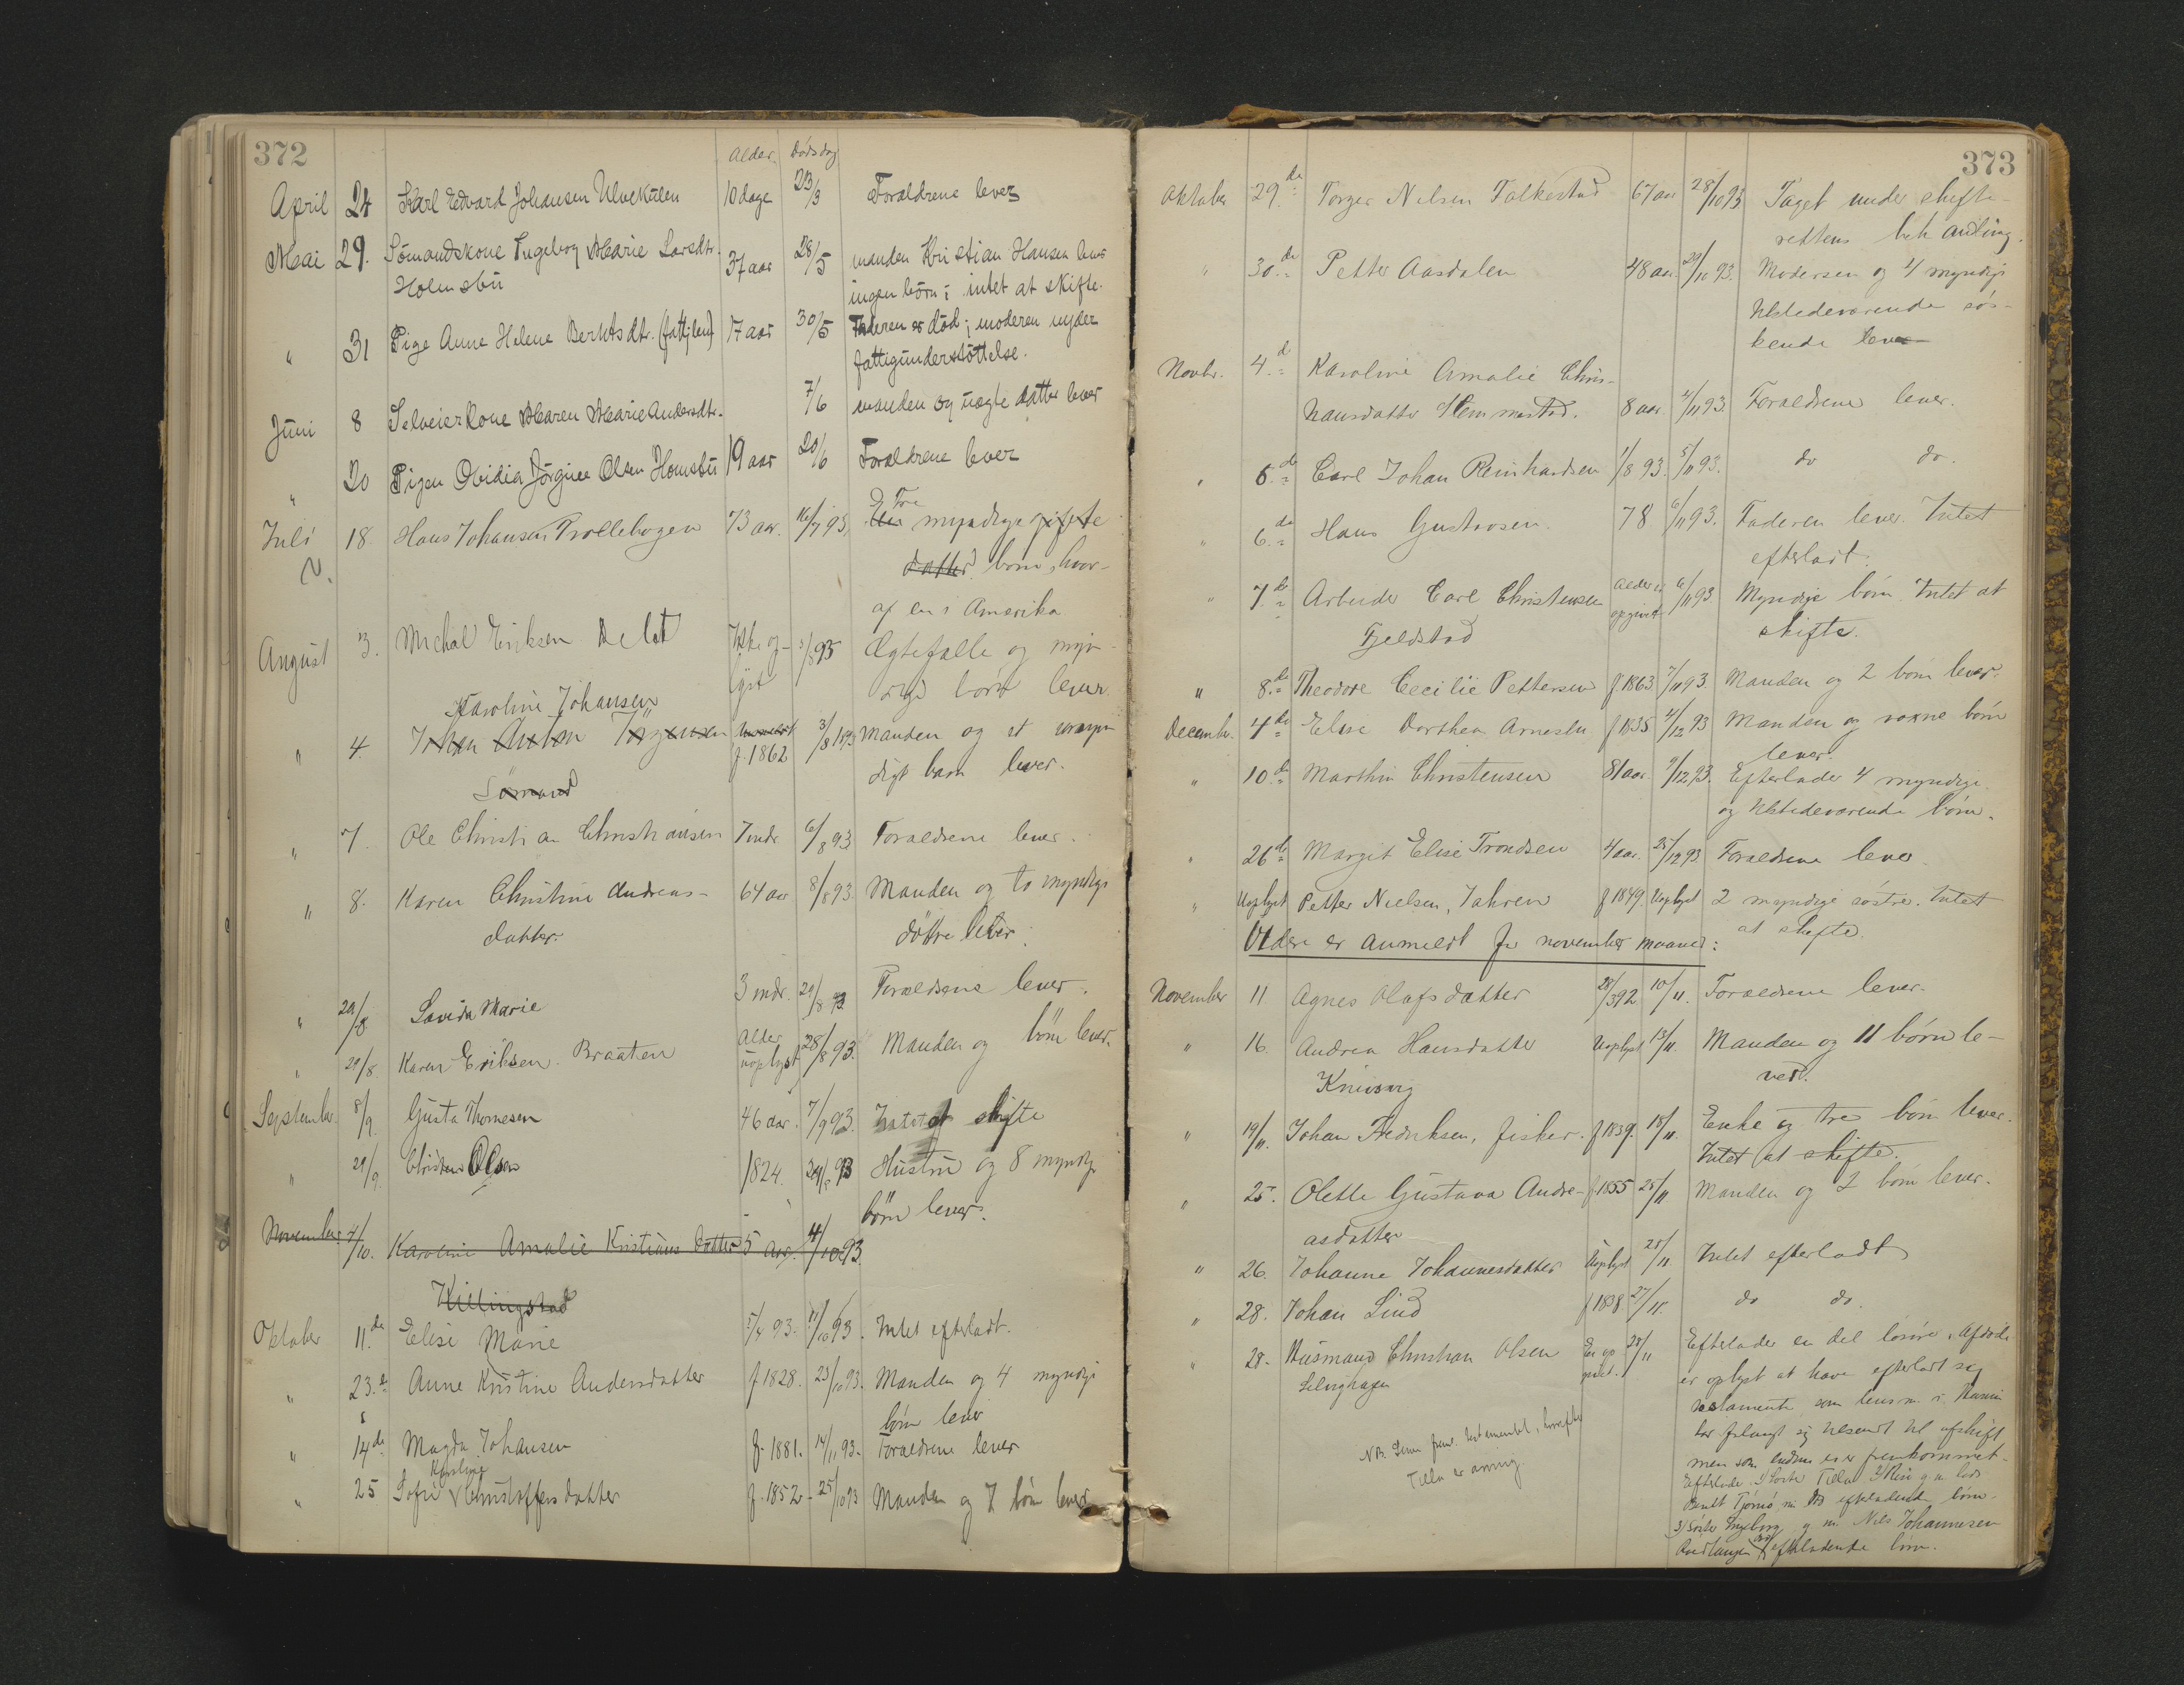 372
Alder. Dødsdag
April 24 Karl Edvard Johansen Ulvekulen 10 dage 23/3 Forældrene lever
Mai 29. Sömandskone Ingeborg Marie Larsdtr. 37 aar 28/5 manden Kristian Hansen lever
Holmsbu ingen börn; intet at skifte.
" 31 Pige Anne Helene Berntsdtr. (fattiglem) 17 aar 30/5 Faderen er död; moderen nyder
fattigunderstöttelse.
Juni 8 Selveierkone Maren Marie Andersdtr. 7/6 manden og uægte datter lever
" 20 Pigen Ovidia Jörgine Olsen Homsbu 19 aar 20/6 Forældrene lever
Tre
Juli 18. Hans Johansen Trollebogen 73 aar. 16/7 93. myndige gifte
datter börn, hvor-
af en i Amerika
August 3. Michal Eriksen Ikke op- 2/8 93 Ægtefælle og myn-
lyst dige börn lever.
Karoline Johansen
" 4. Johan Anton Jörgensen f. 1862 3/8 1893 Manden og et umyn-
Sömand digt barn lever.
" 7. Ole Christian Christiansen 7 mdr. 6/8 93 Forældrene lever.
" 8. Karen Christine Andreas- 64 aar 8/8 93. Manden og to myndige
datter. döttre lever.
" 29/8 Lovida Marie 3 mdr. 29/8 93 Forældrene lever.
" 29/8. Karen Eriksen. Braaten Alder uoplyst 28/8 93. Manden og börn lever.
September 8/9. Gusta Thomesen 46 aar. 7/9 93. Intet at skifte
" 29/9. Olsen 1824. 93 Hustru og 8 myndige
börn lever.
November 4/10. Karoline Amalie Kristians datter 5 aar 4/10 93.
Killingstad
Oktober 11. de Elise Marie 5/4 93. 11/10 93. Intet efterladt.
" 23. de Anne Kristine Andersdatter f 1828. 23/10 93. Manden og 4 myndige
börn lever
" 14 de Magda Johansen f. 1881. 14/11 93. Forældrene lever
Karoline
" 25 Sofie Christoffersdatter f. 1852 - 25/10 93 Manden og 7 börn lever
373
Oktober 29. de Torger Nilsen Falkestad 67 aar 28/10 93 Taget under skifte-
rettens behandling.
" 30. de Petter Aasdalen 48 aar. 29/10 93. Moderen og 4 myndige
tilstedeværende sös-
kende lever
Novbr. 4. de Karoline Amalie Chris-
tiansdatter Klemmestad. 8 aar. 4/11 93. Forældrene lever.
" 5. de Carl Johan Reinhardsen 1/8 93. 5/11 93. do do.
" 6. de Hans Gustavsen. 78 6/11 93. Faderen lever. Intet
efterladt.
" 7. de Arbeider Carl Christensen Alder ei opgivet 6/11 93 Myndige börn. Intet at
Fjeldstad skifte.
" 8. de Theodore Cecilie Pettersen f 1863 7/11 93. Manden og 2 börn lever.
December. 4. de Elise Dorthea Arnesbu f 1835 4/12 93 Manden og voxne börn
lever.
" 10. de Marthin Christensen 81 aar. 9/12 93. Efterlader 4 myndige
og tilstedeværende börn.
" 26 de Margit Elise Trondsen 4 aar. 25/12 93. Forældrene lever
" Uoplyst Petter Nielsen, Jahren f 1849. Uoplyst 2 myndige söstre. Intet
at skifte.
Videre er anmeldt for november maaned:
November 11 Agnes Olafsdatter 28/3 92 10/11. Forældrene lever.
" 16. Andrea Hansdatter Uoplyst 13/11. Manden og 11 börn le-
ved.
" 19/11. Johan Fredriksen, fisker. f 1839. 18/11. Enke og tre börn lever.
Intet at skifte.
" 25. Olette Gustava Andre- f 1855 25/11 Manden og 2 börn lever.
asdatter
" 26. Johanne Johannesdatter Uoplyst 25/11. Intet efterladt
" 28. Johan Lind f 1838 27/11. do do.
" 28. Husmand Christian Olsen Ei op givet. 28/11 Efterlader en del lösöre. Afdöde
er oplyst at have efterladt sig
testamente som lensm. i Hurum
har forlangt sig tilsendt til afskift
men som endnu ei er fremkommet.
NB. Senere frem. testamentet, hvorefter
Tilla er arving.
3) Söster Ingeborg g. m. Nils Johannesen
efterladende börn.